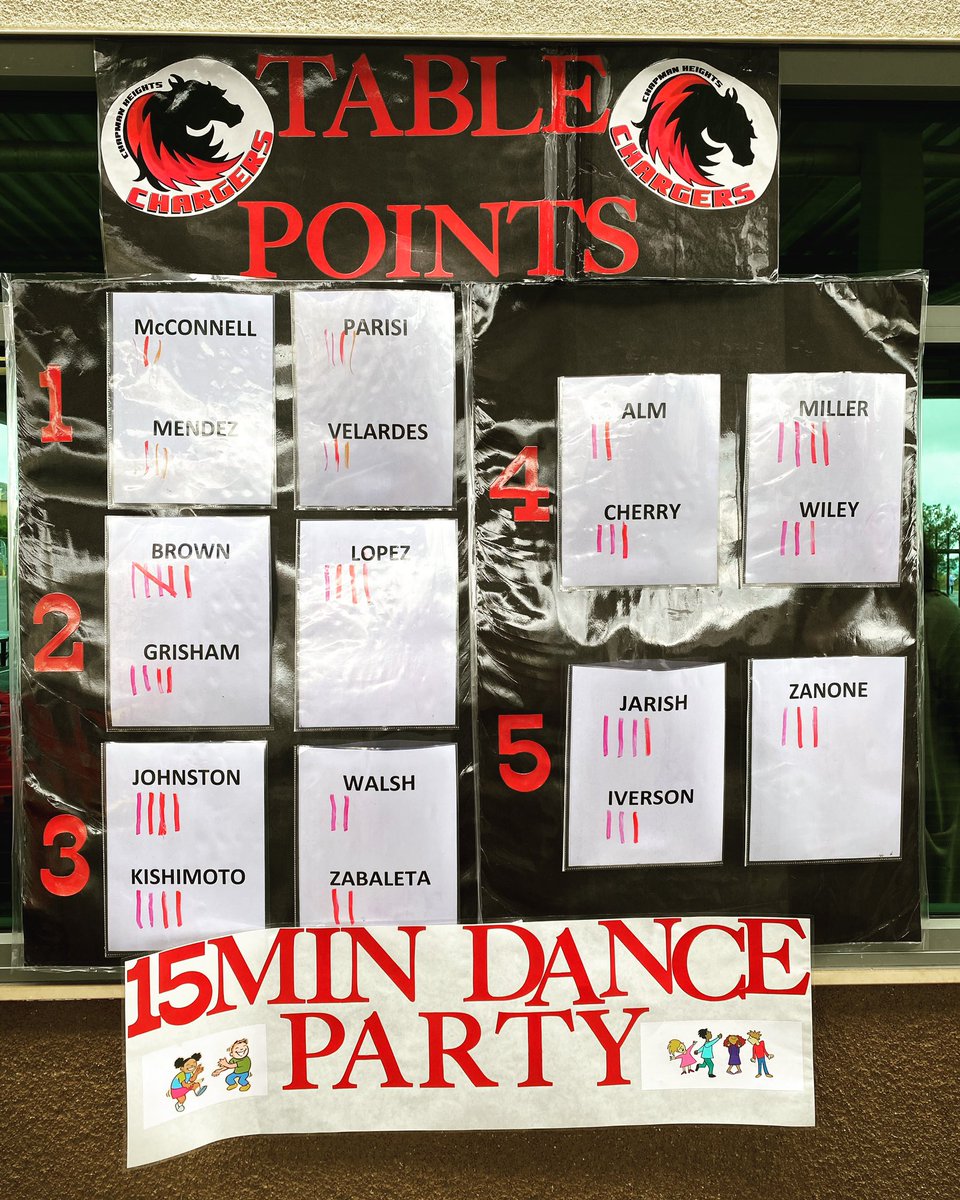 CHAPMAN HEIGHTS
CHARGERS
TABLE
POINTS
CHAPMAN HEIGHTS
CHARGERS
1
McCONNELL
MENDEZ
PARISI
VELARDES
2
BROWN
GRISHAM
LOPEZ
3
JOHNSTON
KISHIMOTO
WALSH
ZABALETA
4
ALM
CHERRY
MILLER
WILEY
5
JARISH
IVERSON
ZANONE
15MIN DANCE
PARTY